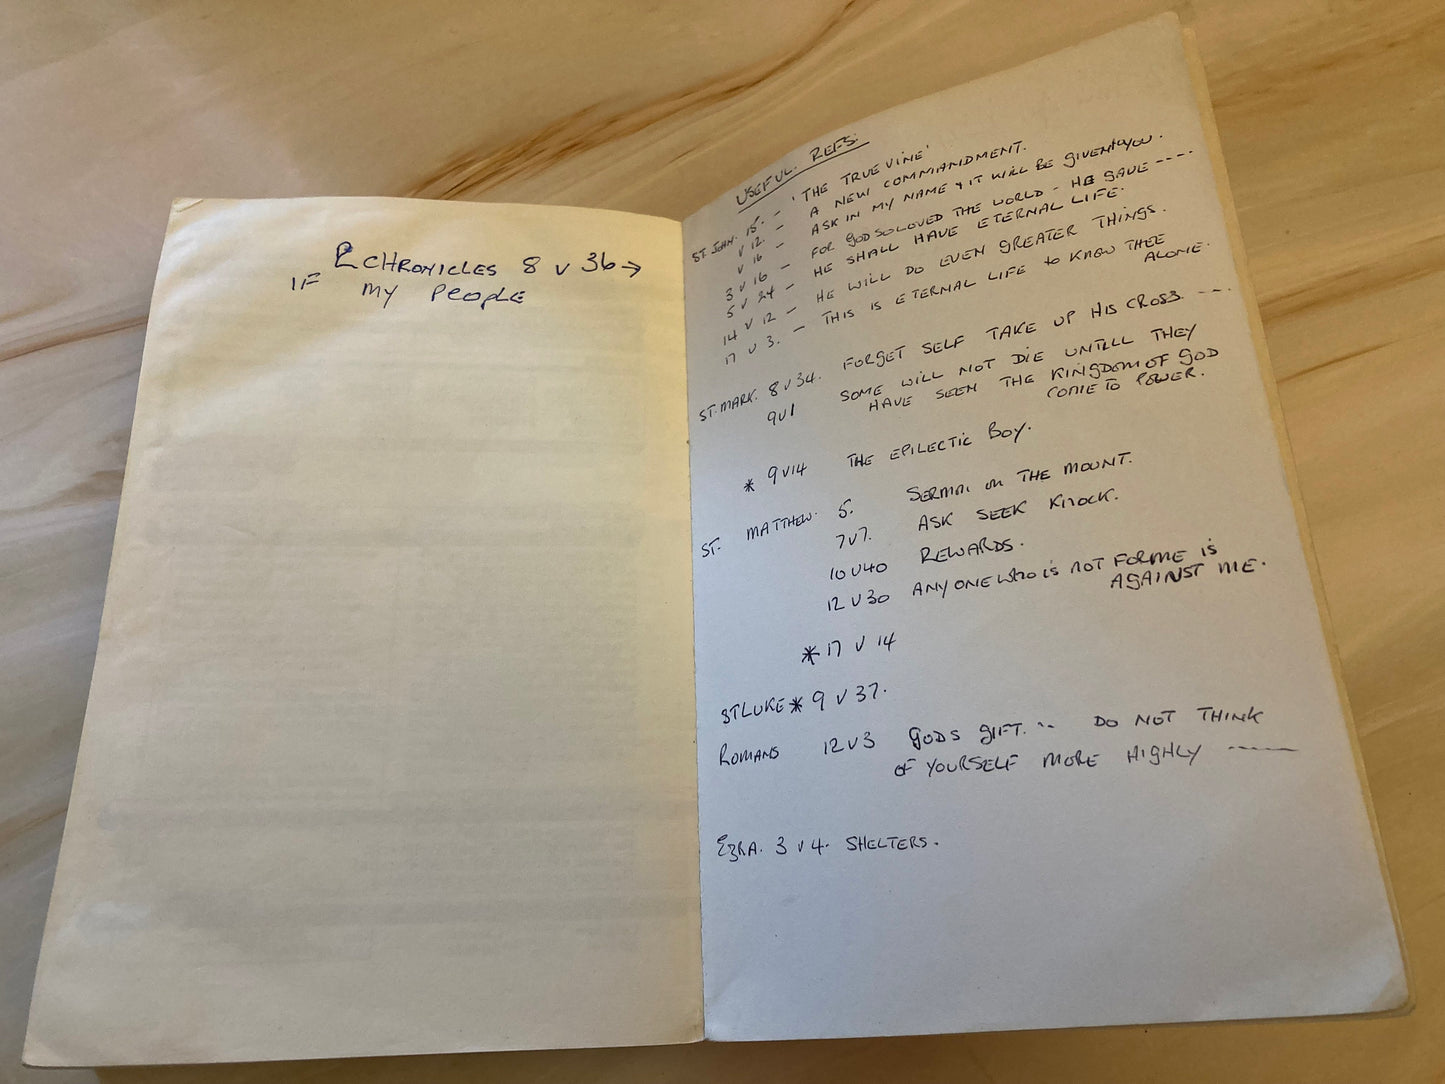 2 CHRONICLES 8 v 36 →
IF MY PEOPLE
USEFUL. REFS.
ST. JOHN. 15. - 'THE TRUE VINE'
v 12. - A NEW COMMANDMENT.
v 16 - ASK IN MY NAME & IT WILL BE GIVEN TO YOU.
3 v 16 - FOR GOD SO LOVED THE WORLD - HE GAVE ----
5 v 24 - HE SHALL HAVE ETERNAL LIFE.
14 v 12 - HE WILL DO EVEN GREATER THINGS.
17 v 3. - THIS IS ETERNAL LIFE TO KNOW THEE
ALONE.
ST. MARK. 8 v 34. FORGET SELF TAKE UP HIS CROSS ---.
9 v 1 SOME WILL NOT DIE UNTILL THEY
HAVE SEEN THE KINGDOM OF GOD
COME TO POWER.
* 9 v 14 THE EPILECTIC BOY.
ST. MATTHEW. 5. SERMON ON THE MOUNT.
7 v 7. ASK SEEK KNOCK.
10 v 40 REWARDS.
12 v 30 ANYONE WHO IS NOT FOR ME IS
AGAINST ME.
* 17 v 14
ST LUKE * 9 v 37.
ROMANS 12 v 3 GODS GIFT. .. DO NOT THINK
OF YOURSELF MORE HIGHLY -----
EZRA. 3 v 4. SHELTERS.